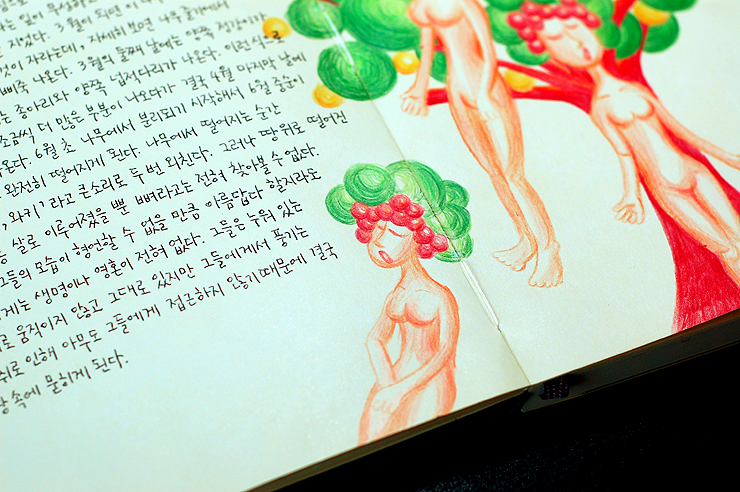 지었다. 3월이 되면 이
것이 자라는데, 자세히 보면 나무줄기에서
삐죽 나온다. 3월의 둘째 날에는 양쪽 정강이가
는 종아리와 양쪽 넙적다리가 나온다. 이런 식으로
조금씩 더 많은 부분이 나오다가 결국 4월 마지막 날에
온다. 6월 초 나무에서 분리되기 시작해서 6월 중순이
완전히 떨어지게 된다. 나무에서 떨어지는 순간
, 와키?'라고 큰소리로 두 번 외친다. 그러나 땅 위로 떨어진
살로 이루어졌을 뿐 뼈라고는 전혀 찾아볼 수 없다.
그들의 모습이 형언할 수 없을 만큼 아름답다 할지라도
게는 생명이나 영혼이 전혀 없다. 그들은 누워 있는
로 움직이지 않고 그대로 있지만 그들에게서 풍기는
취로 인해 아무도 그들에게 접근하지 않기 때문에 결국
속에 묻히게 된다.